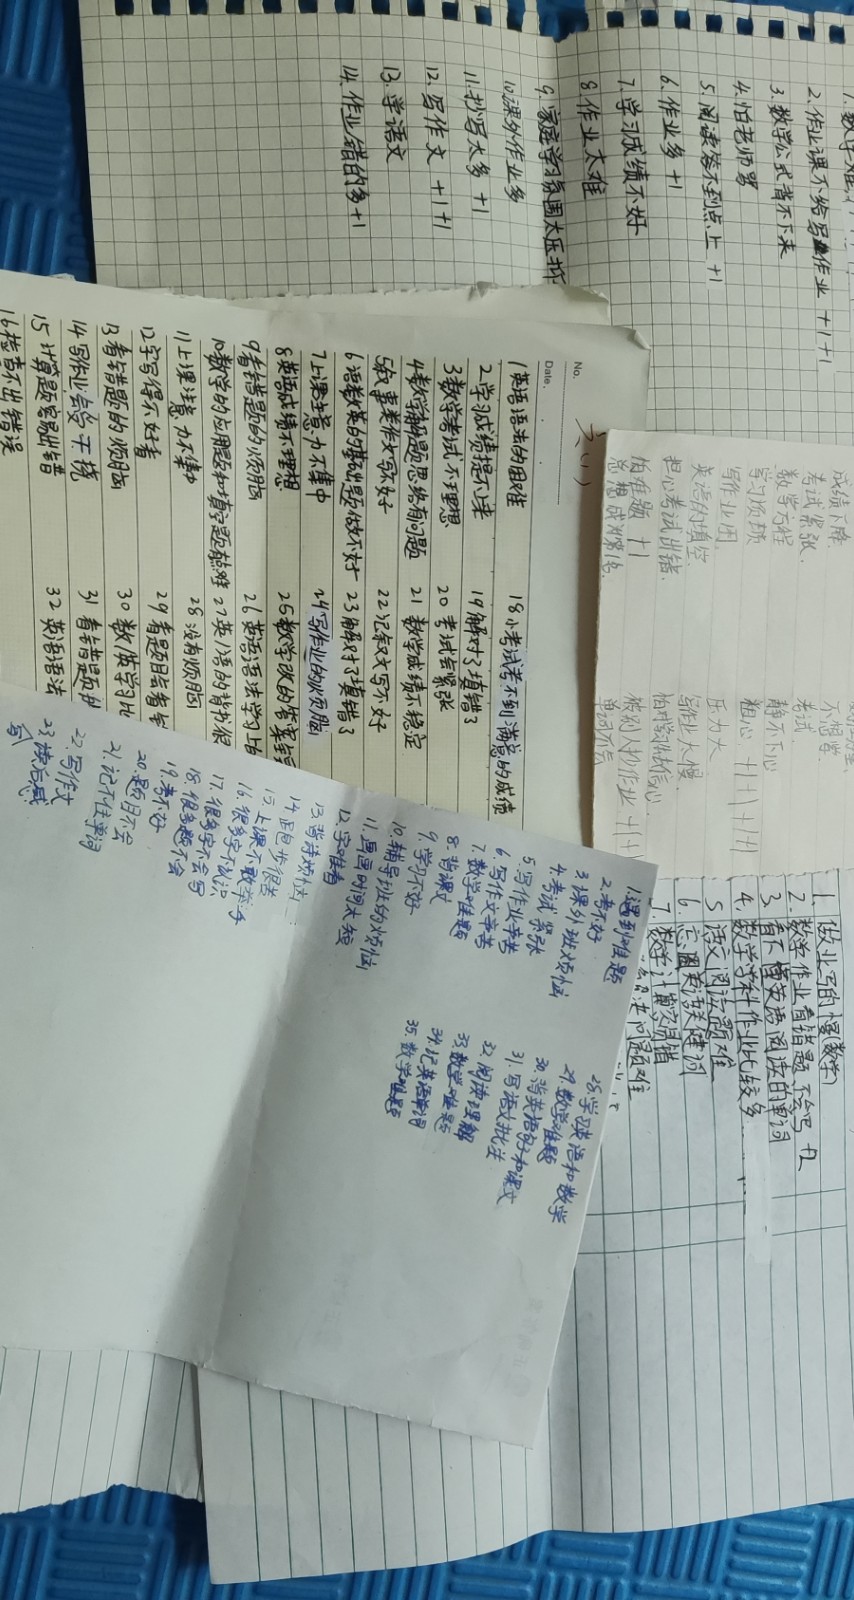 1. 数学难
2. 作业课不给写作业 +1+1
3. 数学公式背不下来
4. 怕老师骂
5. 阅读答不到点上 +1
6. 作业多 +1
7. 学习成绩不好
8 作业太难
9. 家庭学习氛围太压抑
10课外作业多
11.抄写太多 +1
12. 写作文 +1+1
13. 学语文
14. 作业错的多+1
No.
Date.
六(1)
1英语语法的困难
2学习成绩提不上来
3数学考试不理想
4数学解题思路有问题
5叙事类作文写不好
6语数英的基础题做不好
7上课注意力不集中
8英语成绩不理想
9看错题的烦恼
10数学的应用题和填空题都难
11上课注意力不集中
12字写得不好看
13看错题的烦恼
14写作业会受干扰
15计算题容易出错
16检查不出错误
18小考试考不到满意的成绩
19解对了填错了
20 考试会紧张
21 数学成绩不稳定
22记叙文写不好
23解对了填错了
24写作业的烦恼
25数学改的答案全
26英语语法学习上
27英语的背书很
28没有烦恼
29看题目会看
30数/英学习比
31 看错题的
32英语语法
成绩下降
考试紧张.
数学方程
学习烦恼
写作业困
英语的填空
担心考试出错.
怕难题 +1
总想成为第1名
不想学
考试
静不下心
粗心 +1+1+1+1
压力大
写作业太慢
怕学习没信心
被别人抄作业 +1+1
单词不会
1. 做业写的慢(数学)
2. 数学作业有错题不会写 +2
3. 看不懂英语阅读的单词
4. 数学学科作业比较多
5 语文阅读题难
6. 忘圈英语关键词
7 数学计算容易错
问题难
1.遇到难题
2.考不好
3课外班烦恼
4.考试紧张
5.写作业辛苦
6.写作文辛苦
7.数学难题
8.背课文
9.学习不好
10.辅导班的烦恼
11.画画时间太短
12.字难看
13.背诗烦恼
14跑步很差
15.上课不敢举手
16.很多字不认识
17.很多字不会写
18.很多题不会
19.考不好
20题目不会
21.记不住单词
22.写作文
23.读后感
28.学英语和数学
29.数学难题
30.背英语句子和课文
31.写语文批注
32.阅读理解
33.数学难题
34.记英语单词
35.数学难题